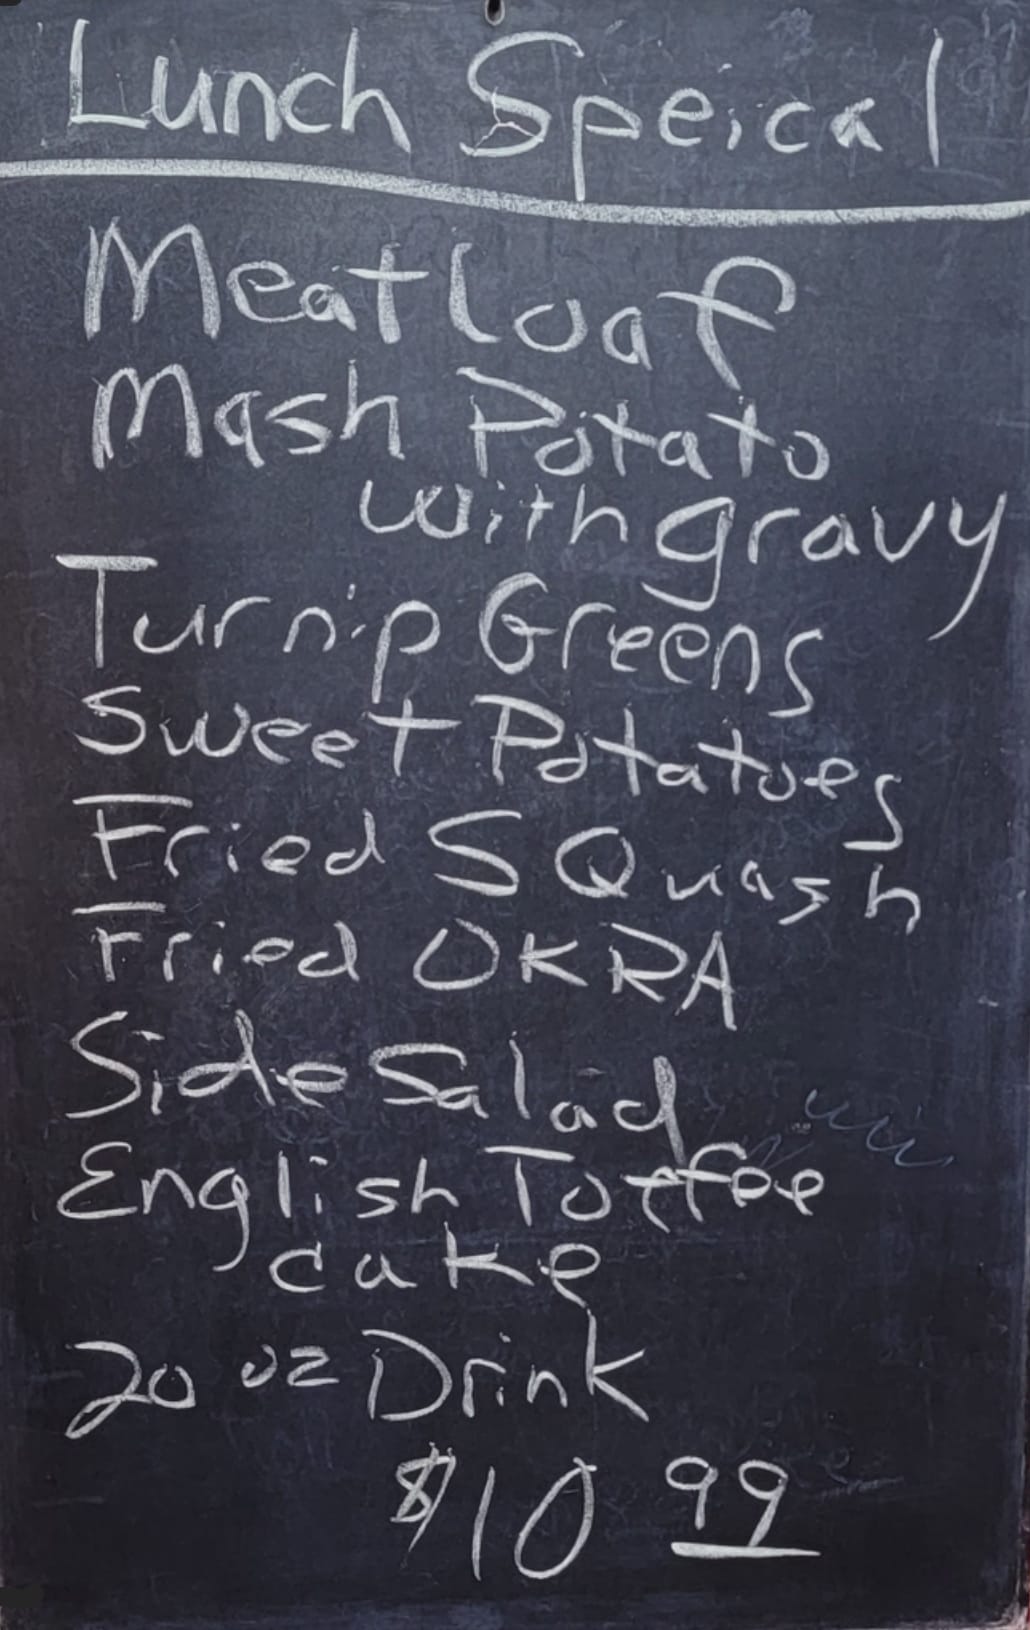 Lunch Speical
Meatloaf
Mash Potato
with gravy
Turnip Greens
Sweet Potatoes
Fried SQuash
Fried OKRA
Side Salad
English Toffee
cake
20 oz Drink
$10 99